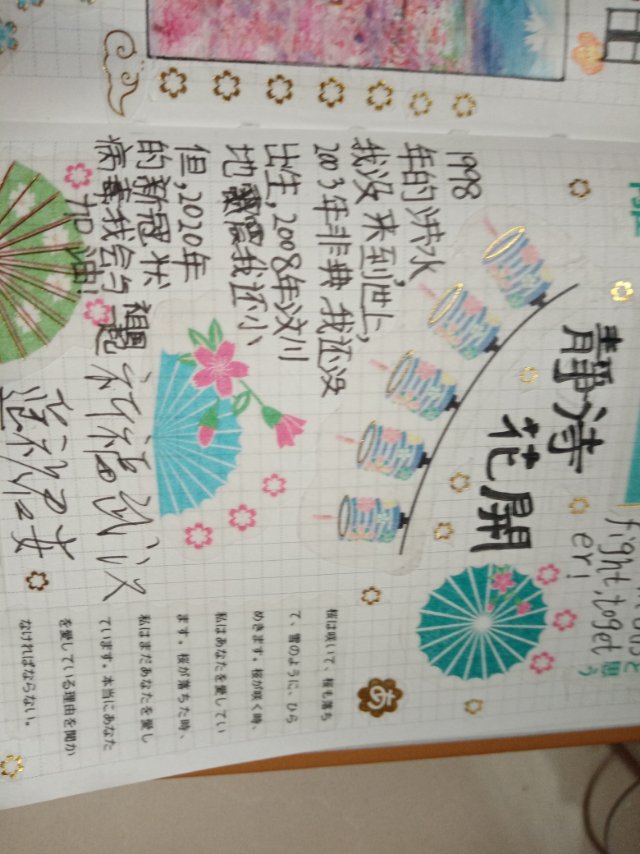 fight, toget
er!
と
思う
靜待
花開
1998
年的洪水
我没来到世上,
2003年非典,我还没
出生,2008年汶川
地震我还小
但,2020年
的新冠状
病毒我会与
加油!
祈福武汉
あ
桜は咲いて、桜も落ち
て、雪のように、ひら
めきます。桜が咲く時、
私はあなたを愛してい
ます。桜が落ちた時、
私はまだあなたを愛し
ています。本当にあなた
を愛している理由を聞か
なければならない。